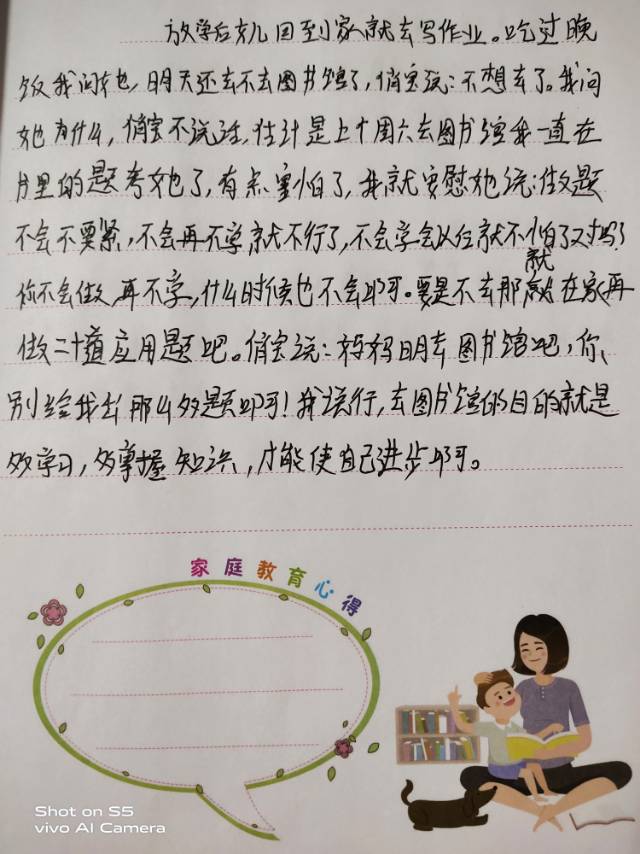 放学后女儿回到家就去写作业。吃过晚
饭我问她，明天还去不去图书馆了，俏宝说：不想去了。我问
她为什么，俏宝不说话，估计是上个周六去图书馆我一直在
书里的题考她了，有点害怕了，我就安慰她说：做题
不会不要紧，不会再不学就不行了，不会学会以后就不怕了对吗？
你不会做，再不学，什么时候也不会啊。要是不去那就在家再
就
做二十道应用题吧。俏宝说：妈妈明去图书馆吧，你
别给我出那么多题啊！我说行，去图书馆的目的就是
多学习，多掌握知识，才能使自己进步啊。
家庭教育心得
Shot on S5
vivo AI Camera